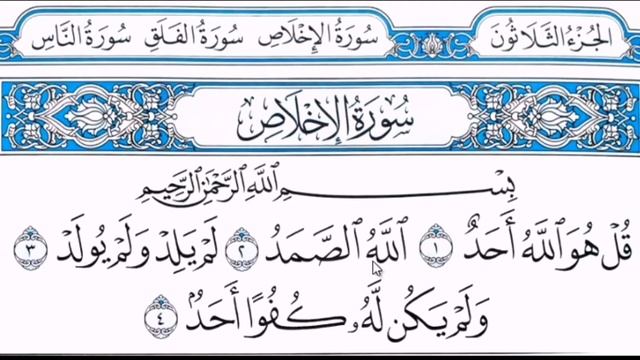 الجُزْءُ الثَّلَاثُونَ
سُورَةُ الإِخْلَاصِ سُورَةُ الفَلَقِ سُورَةُ النَّاسِ
سُورَةُ الإِخْلَاصِ
بِسْمِ ٱللَّهِ ٱلرَّحْمَٰنِ ٱلرَّحِيمِ
قُلْ هُوَ ٱللَّهُ أَحَدٌ ١ ٱللَّهُ ٱلصَّمَدُ ٢ لَمْ يَلِدْ وَلَمْ يُولَدْ ٣
وَلَمْ يَكُن لَّهُۥ كُفُوًا أَحَدٌۢ ٤